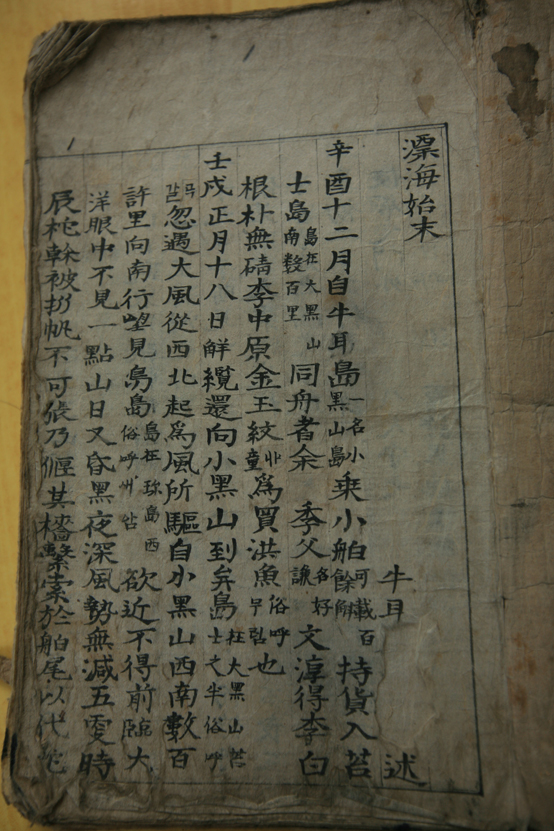 漂海始末
牛耳 述
辛酉十二月自牛耳島一名小黑山島乗小舶可載百餘斛持貨入苔
士島島在大黑山南數百里同舟者余季父名好謙文淳得李白
根朴無碃李中原金玉紋丱童爲買洪魚俗呼무럼也
壬戌正月十八日觧纜還向小黑山到弁島在大黑山苔士文半俗呼
곡갈忽遇大風從西北起爲風所驅自小黑山西南數百
許里向南行望見鳥島島在珍島西俗呼 欲近不得前臨大
洋眼中不見一點山日又昏黑夜深風勢無減五更時
辰柁榦被折帆不可張乃偃其檣繫索於舶尾以代柁